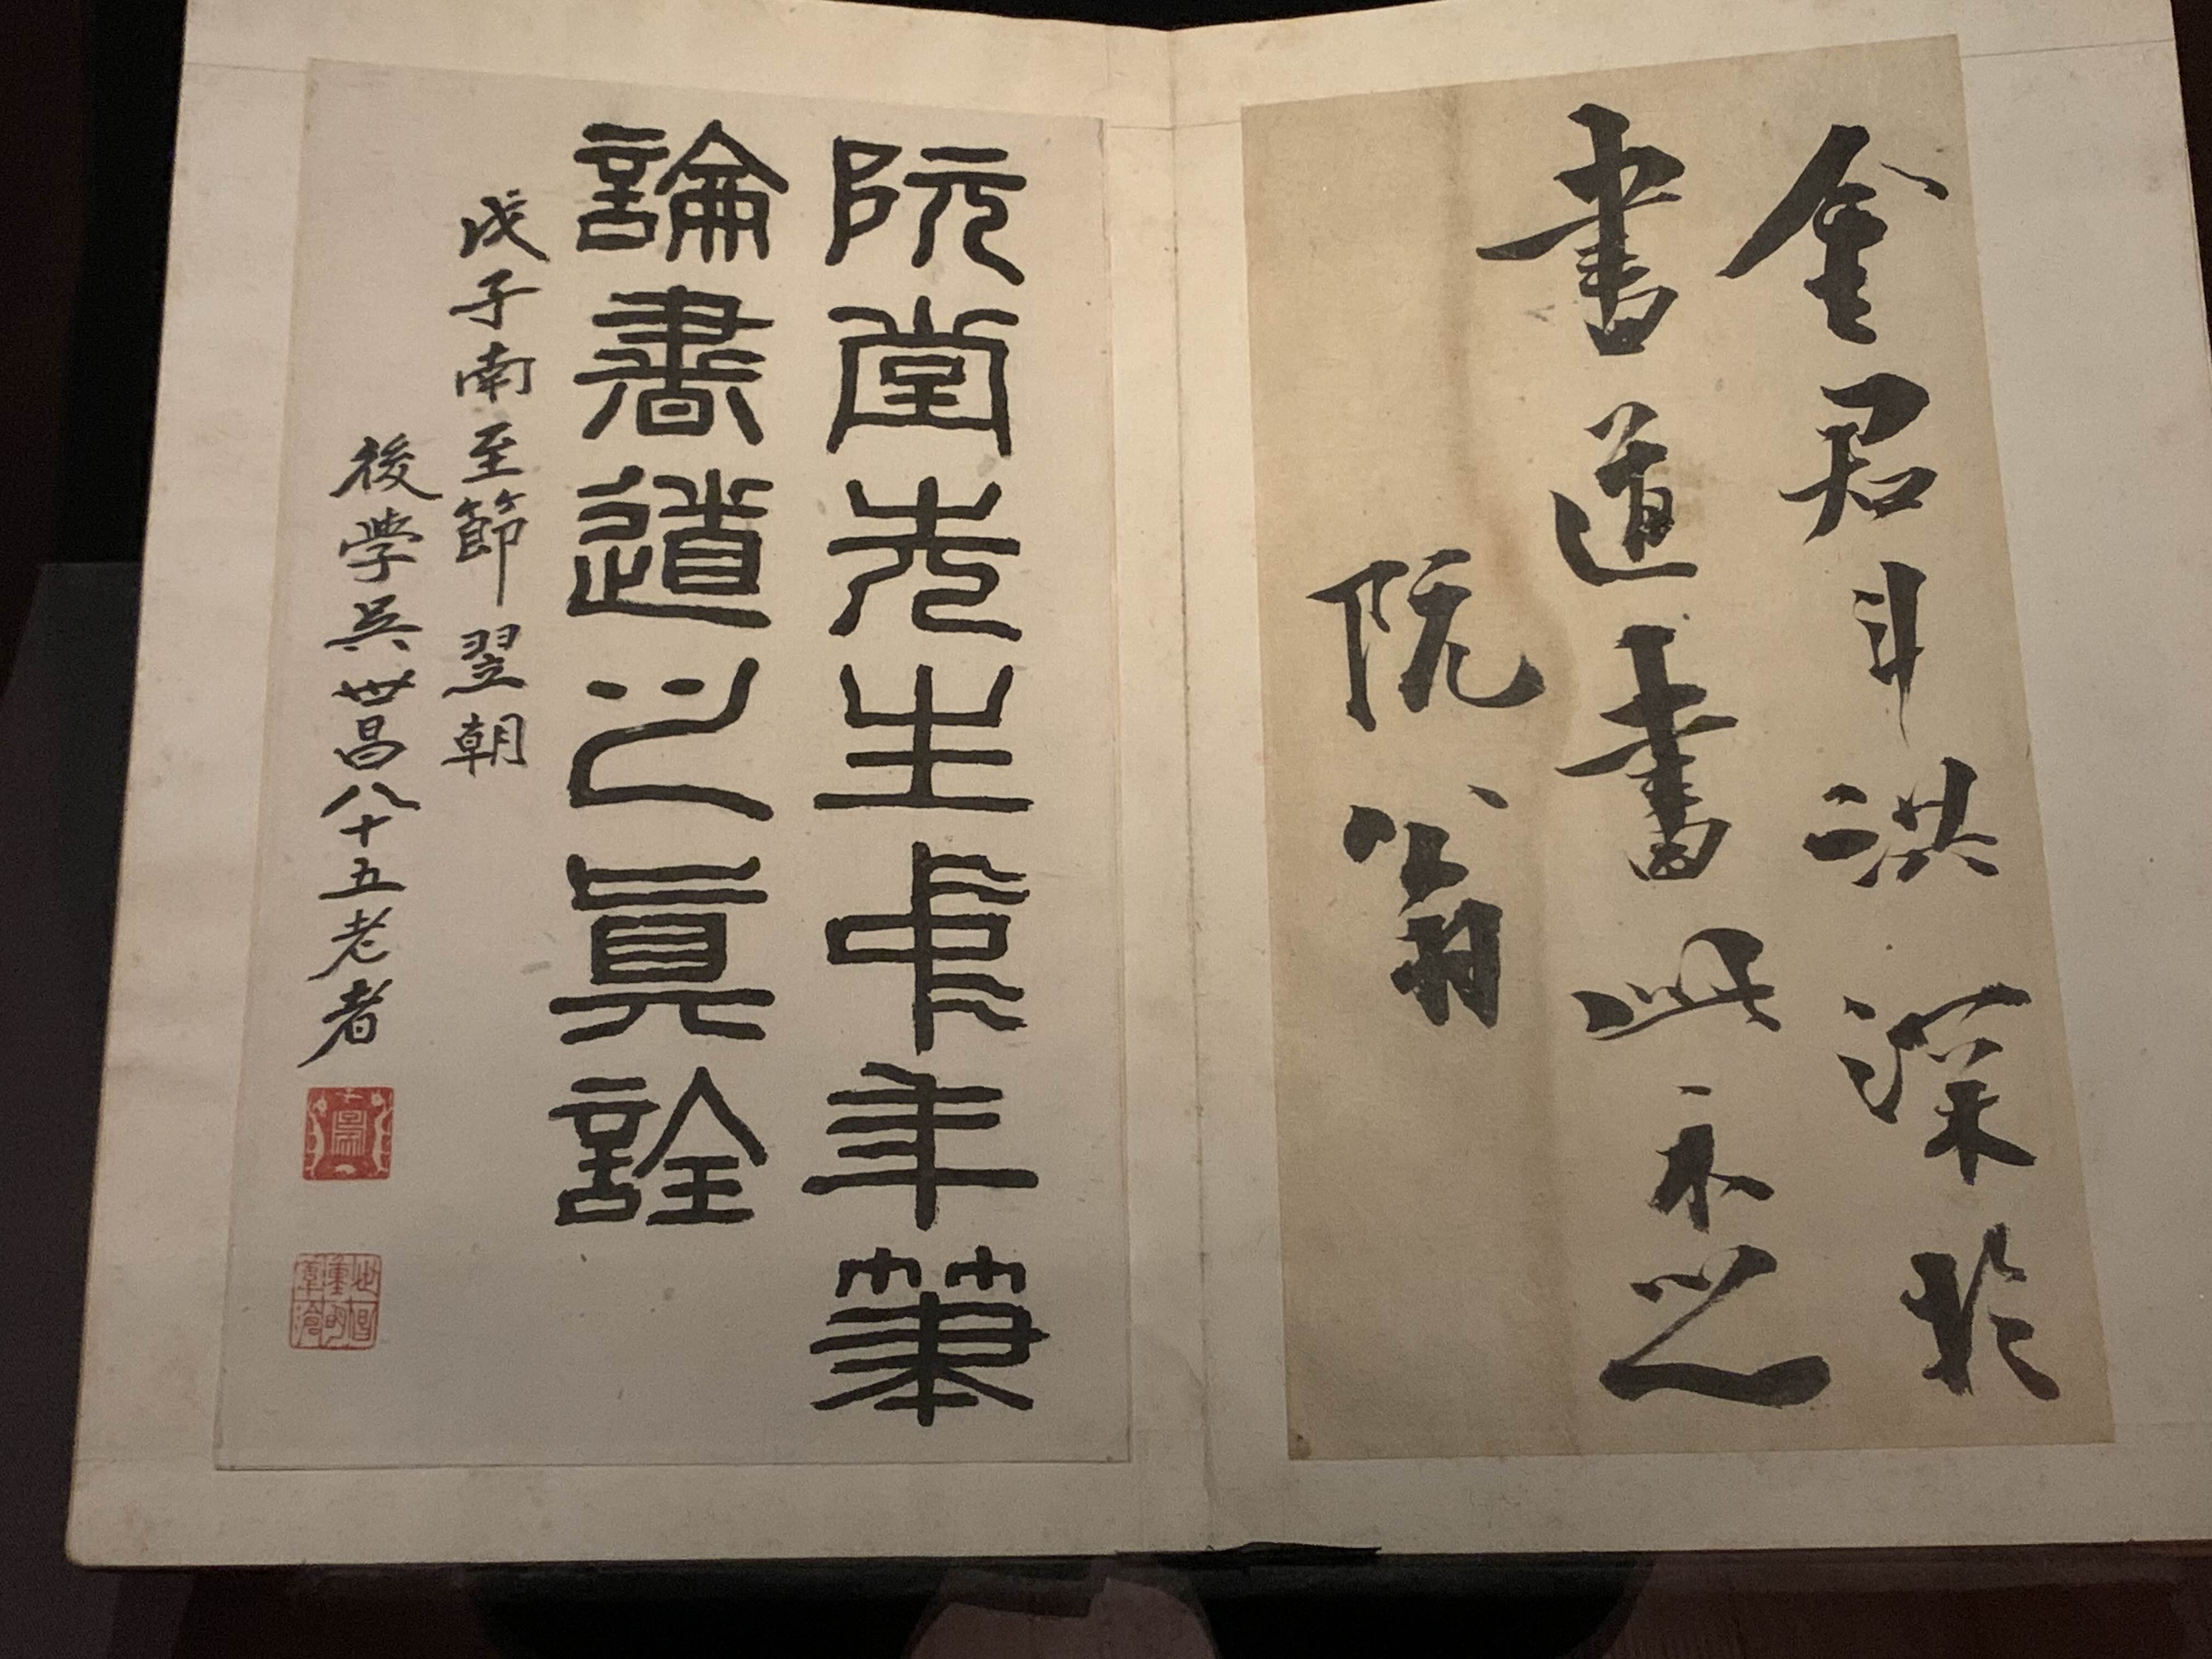 金君斗洪深於
書道書此示之
阮翁
阮堂先生中年筆
論書道之眞詮
戊子南至節翌朝
後学吳世昌八十五老者